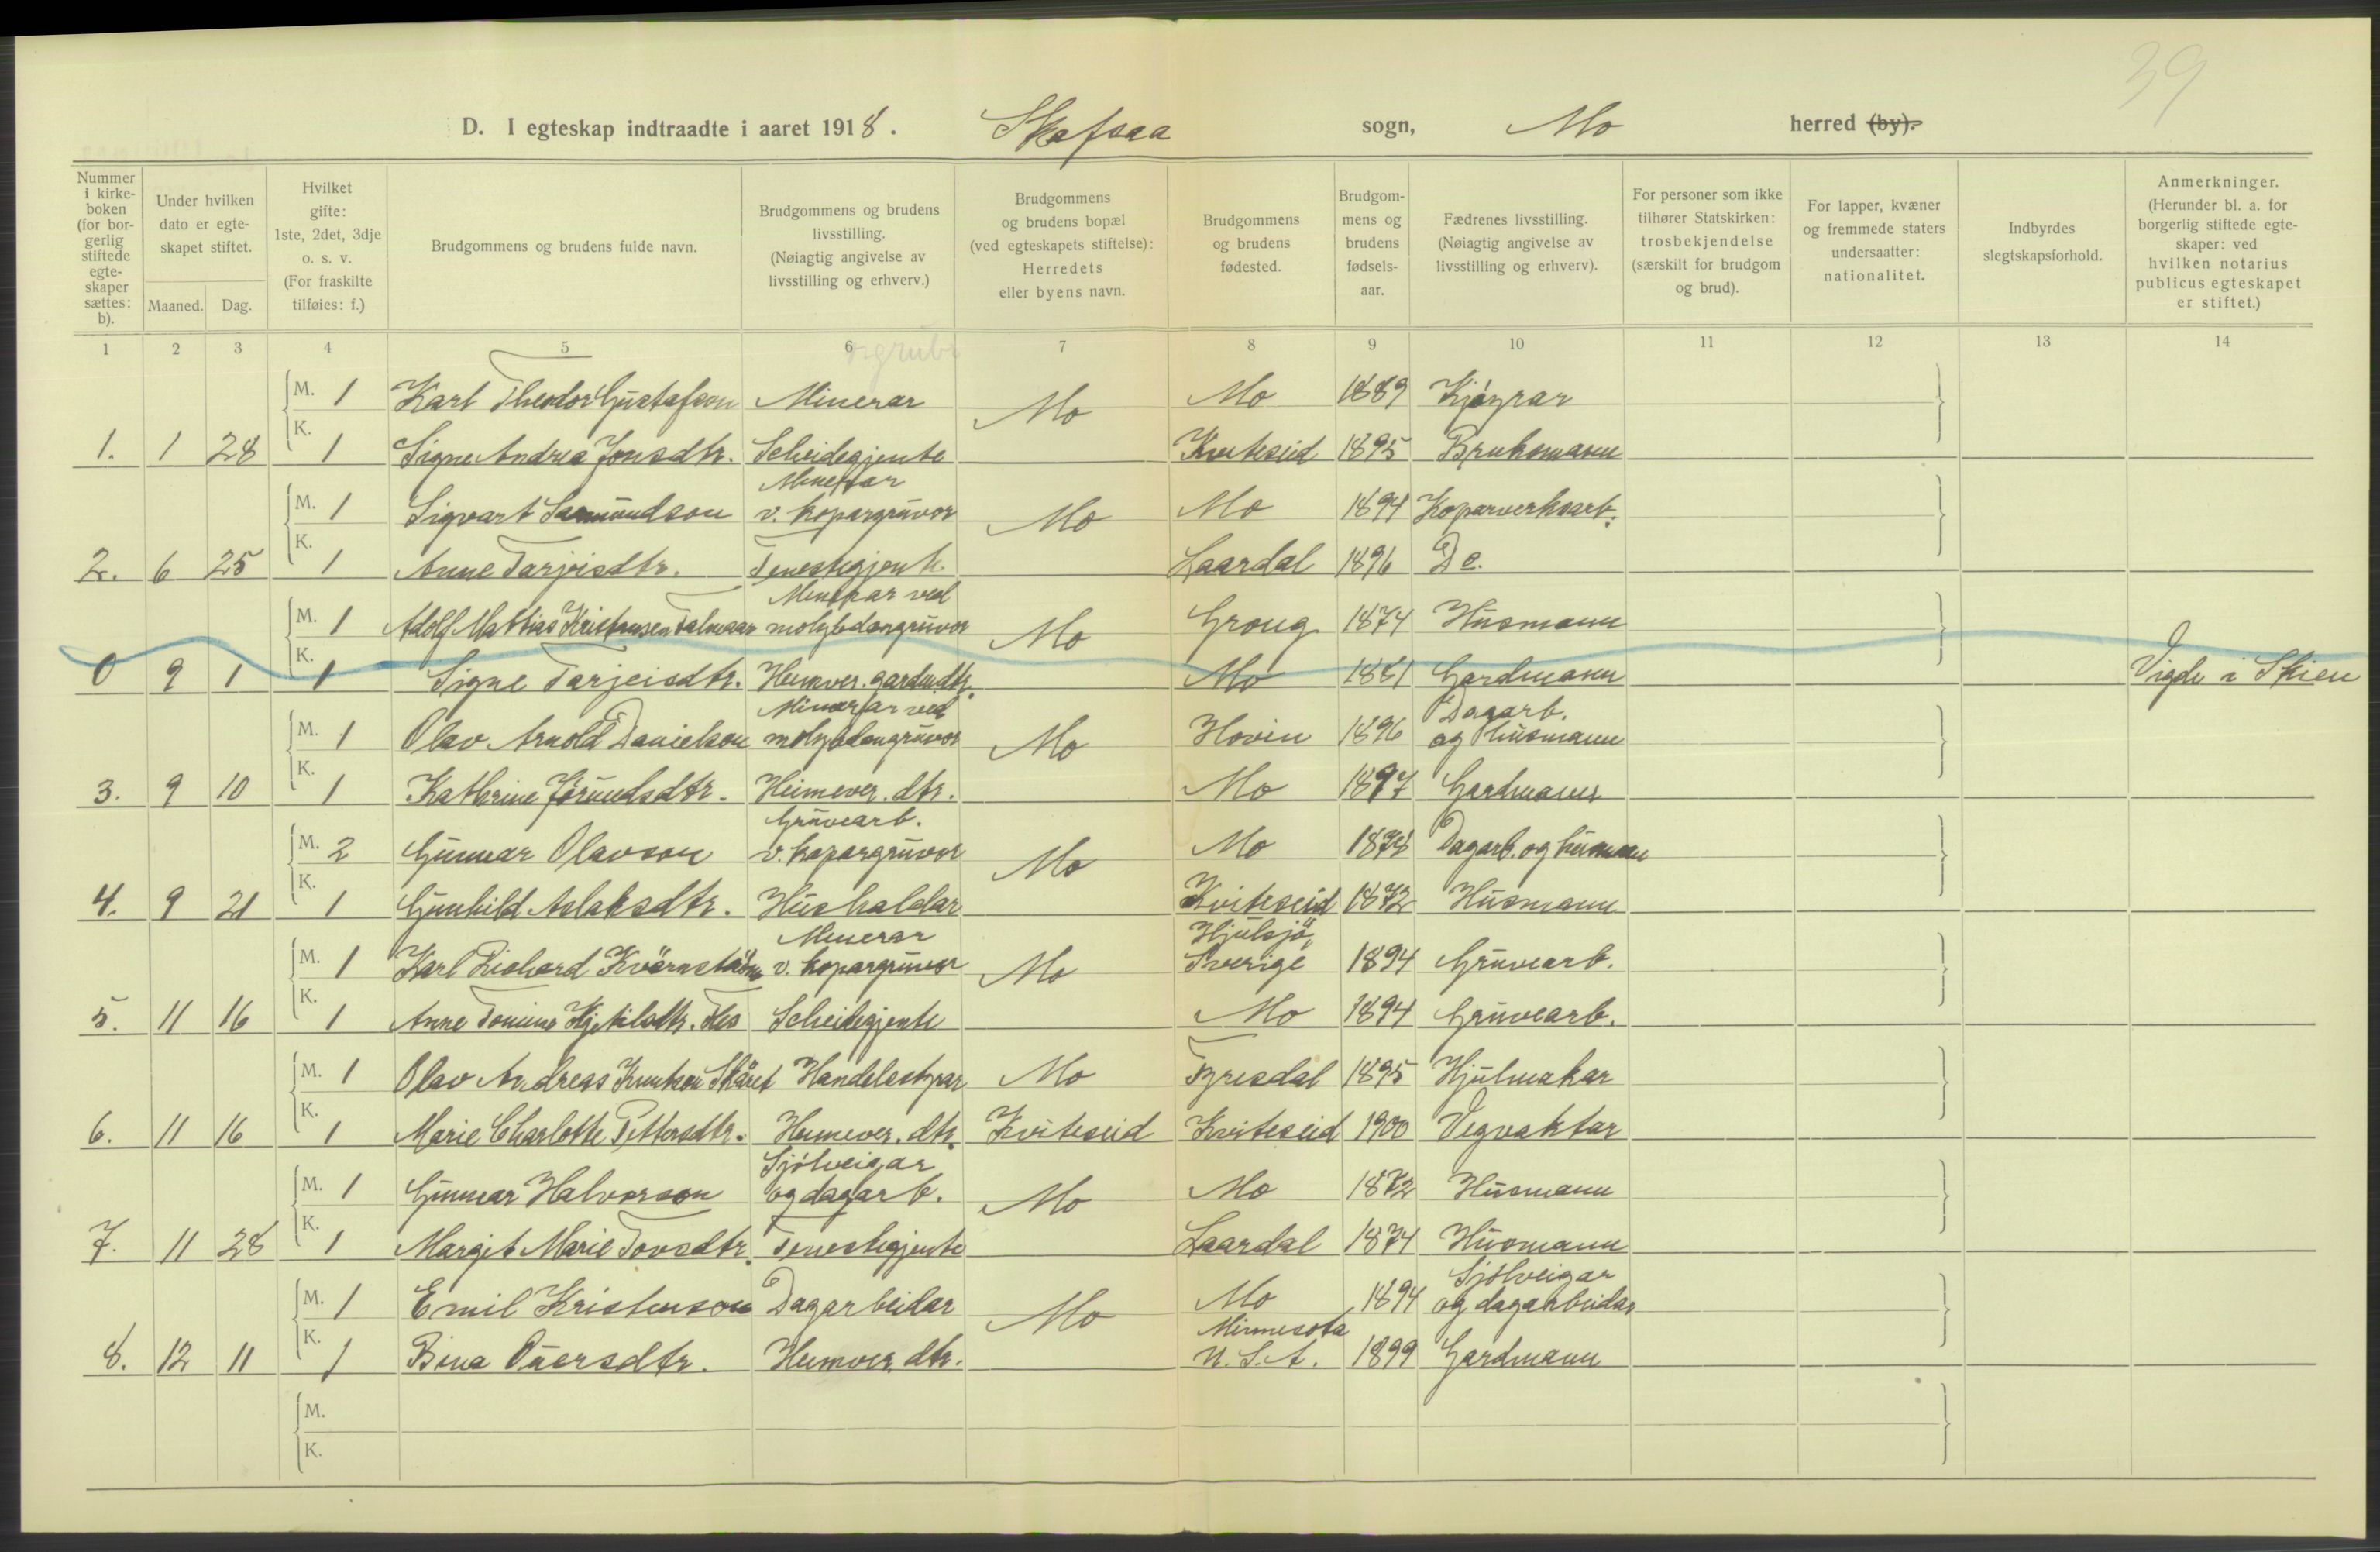 39
D. I egteskap indtraadte i aaret 1918. Skafsaa sogn, Mo herred (by).
Nummer i kirkeboken (for borgerlig stiftede egteskaper sættes: b).
Under hvilken dato er egteskapet stiftet.
Maaned. Dag.
Hvilket gifte: 1ste, 2det, 3dje o. s. v. (For fraskilte tilføies: f.)
Brudgommens og brudens fulde navn.
Brudgommens og brudens livsstilling. (Nøiagtig angivelse av livsstilling og erhverv.)
Brudgommens og brudens bopæl (ved egteskapets stiftelse): Herredets eller byens navn.
Brudgommens og brudens fødested.
Brudgommens og brudens fødselsaar.
Fædrenes livsstilling. (Nøiagtig angivelse av livsstilling og erhverv).
For personer som ikke tilhører Statskirken: trosbekjendelse (særskilt for brudgom og brud).
For lapper, kvæner og fremmede staters undersaatter: nationalitet.
Indbyrdes slegtskapsforhold.
Anmerkninger. (Herunder bl. a. for borgerlig stiftede egteskaper: ved hvilken notarius publicus egteskapet er stiftet.)
1 2 3 4 5 6 7 8 9 10 11 12 13 14
v. grube
M. 1 Karl Theodor Gustafson Minerar Mo Mo 1889 Kjøyrar
1. 1 28 K. 1 Signe Andrea Jonsdtr. Scheidegjente Kviteseid 1895 Bruksmann
M. 1 Sigvart Saamundson Minerar v. kopargruvor Mo Mo 1894 Koparverksarb.
2. 6 25 K. 1 Anne Tarjeisdtr. Tenestegjent. Laardal 1896 Do.
M. 1 Adolf Mattias Kristensen Minerar ved molybdengruvor Mo Grong 1874 Husmann
0 9 1 K. 1 Signe Tarjeisdtr. Heimver. gardm.dtr. Mo 1881 Gardmann Vigde i Skien
M. 1 Olav Arnold Danielson Minerar ved molybdengruvor Mo Hovin 1896 Dagarb. og husmann
3. 9 10 K. 1 Kathrine Jørundsdtr. Heimever. dtr. Mo 1897 Gardmann
M. 2 Gunnar Olavson Gruvearb. v. kopargruvor Mo Mo 1878 Dagarb. og husmann
4. 9 21 K. 1 Gunhild Aslaksdtr. Hushaldar Kviteseid 1872 Husmann
M. 1 Karl Richard Kvärnström Minerar v. kopargruvor Mo Hjulsjö, Sverige 1894 Gruvearb.
5. 11 16 K. 1 Anne Tomine Kjetilsdtr. Scheidegjente Mo 1894 Gruvearb.
M. 1 Olav Andreas Knutson Skåret Handelsstyrar Mo Fyresdal 1895 Hjulmakar
6. 11 16 K. 1 Marie Charlotte Pettersdtr. Heimever. dtr. Kviteseid Kviteseid 1900 Vegvaktar
M. 1 Gunnar Halvorson Sjølveigar og dagarb. Mo Mo 1872 Husmann
7. 11 28 K. 1 Margit Marie Tovsdtr. Tenestegjente Laardal 1874 Husmann
M. 1 Emil Kristenson Dagarbeidar Mo Mo 1894 Sjølveigar og dagarbeidar
8. 12 11 K. 1 Bina Oversdtr. Heimver. dtr. Minnesota U.S.A. 1899 Gardmann
M.
K.